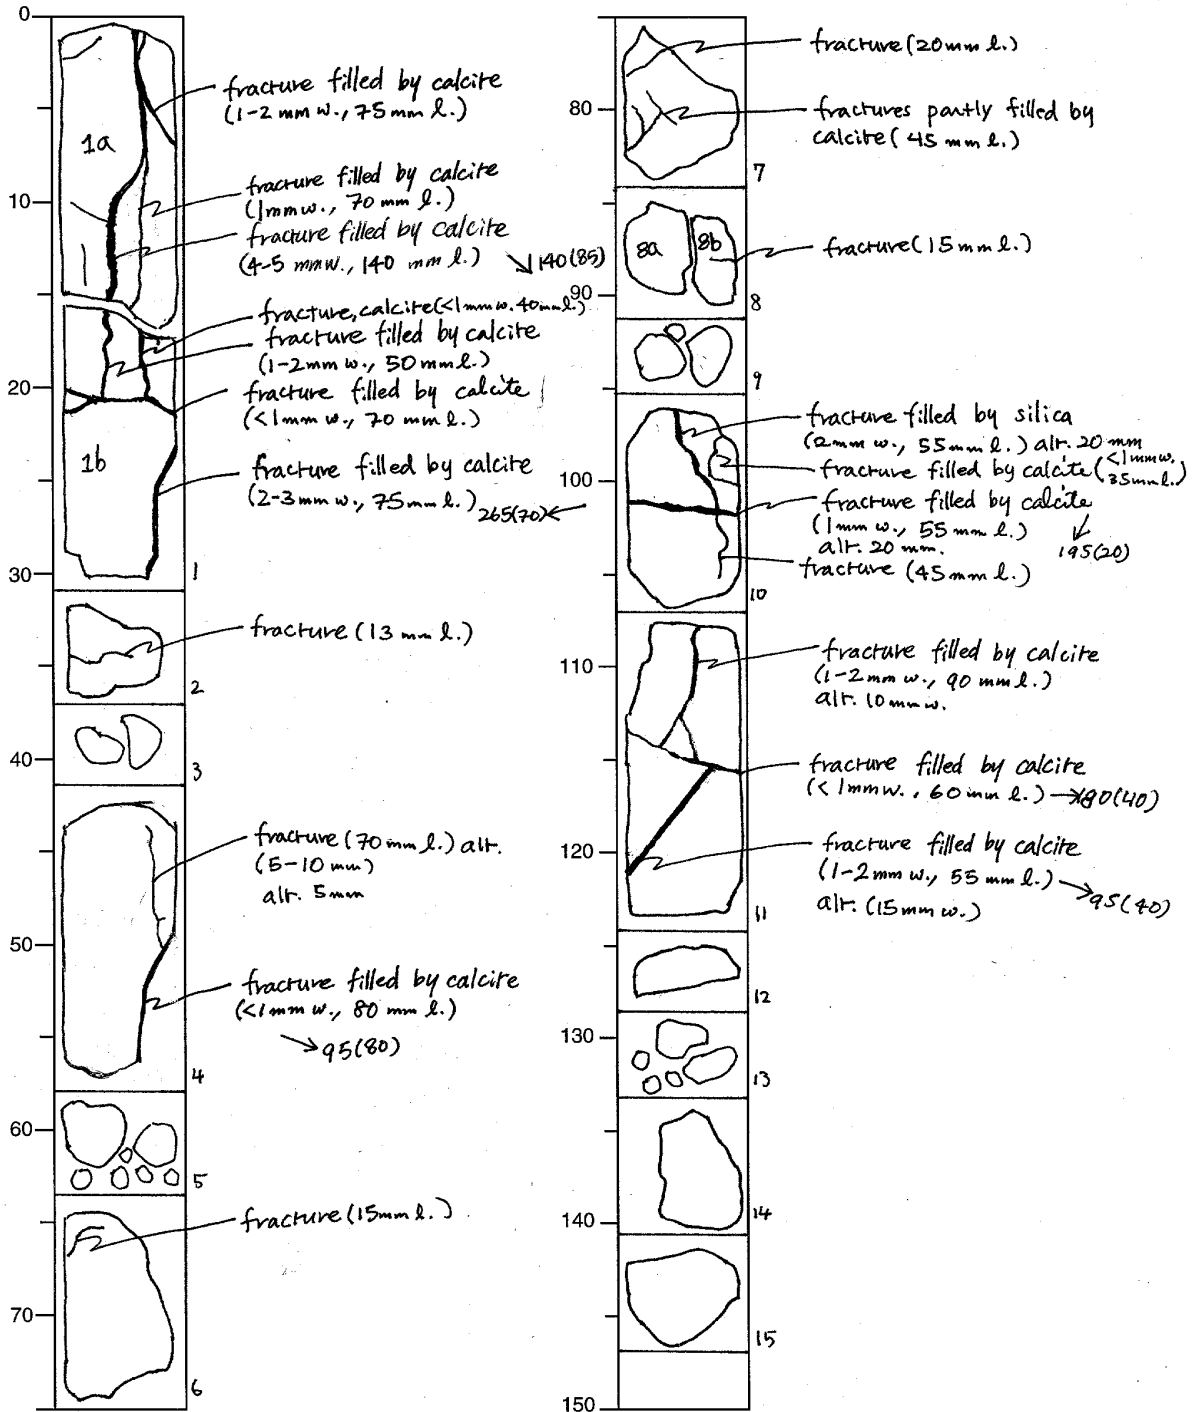 0
1a
fracture filled by calcite
(1-2 mm w., 75mm l.)
10
fracture filled by calcite
(1mm w., 70 mm l.)
fracture filled by calcite
(4-5 mm w., 140 mm l.)
140(85)
fracture, calcite (<1mm w. 40mm l.)
fracture filled by calcite
(1-2mm w., 50mm l.)
20
fracture filled by calcite
(<1mm w., 70 mm l.)
1b
fracture filled by calcite
(2-3mm w., 75mm l.)
265(70)
30
1
fracture (13 mm l.)
2
40
3
fracture (70mm l.) alt.
(5-10 mm)
alt. 5mm
50
fracture filled by calcite
(<1mm w., 80 mm l.)
95(80)
4
60
5
fracture (15mm l.)
70
6
fracture (20mm l.)
80
fractures partly filled by
calcite (45 mm l.)
7
8a
8b
fracture (15mm l.)
90
8
9
fracture filled by silica
(2mm w., 55mm l.) alt. 20 mm
fracture filled by calcite (<1mm w.
35mm l.)
100
fracture filled by calcite
(1mm w., 55 mm l.)
alt. 20 mm.
195(20)
fracture (45mm l.)
10
110
fracture filled by calcite
(1-2mm w., 90 mm l.)
alt. 10mm w.
fracture filled by calcite
(<1mm w., 60 mm l.)
(40)
120
fracture filled by calcite
(1-2mm w., 55 mm l.)
95(40)
alt. (15mm w.)
11
12
130
13
14
140
15
150